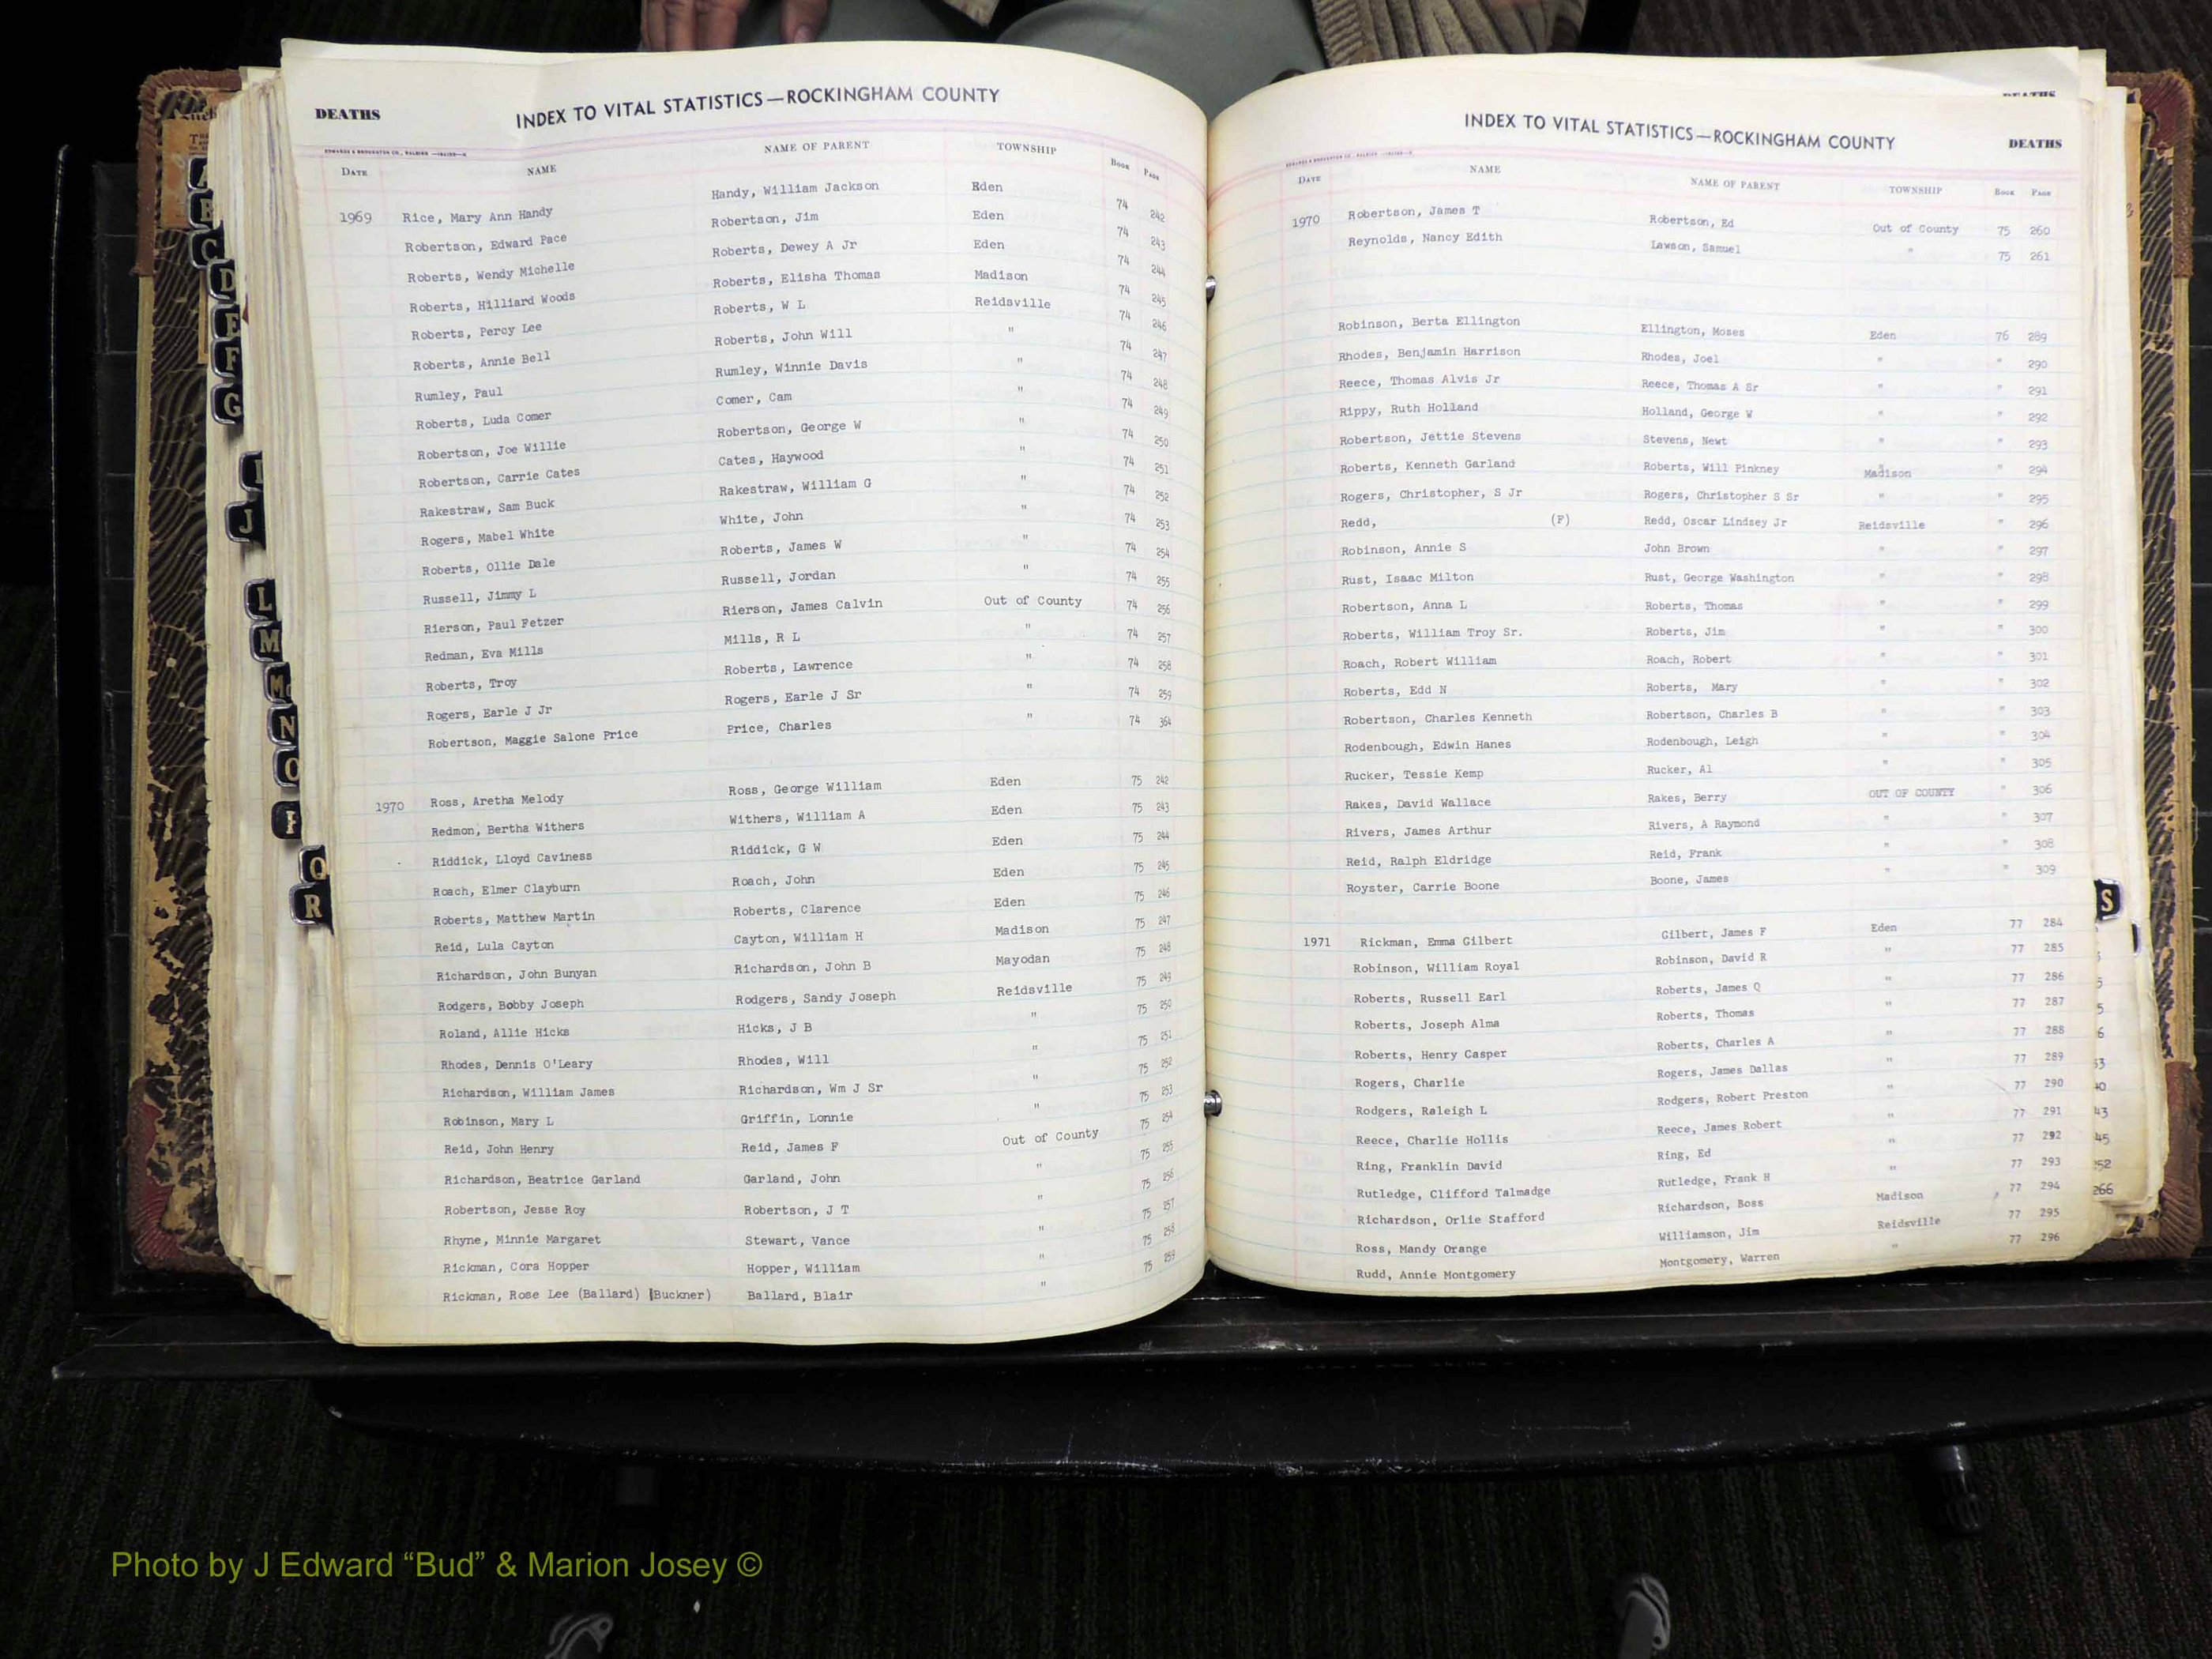 DEATHS
INDEX TO VITAL STATISTICS—ROCKINGHAM COUNTY
DATE NAME NAME OF PARENT TOWNSHIP BOOK PAGE
1969 Rice, Mary Ann Handy Handy, William Jackson Eden 74 242
Robertson, Edward Pace Robertson, Jim Eden 74 243
Roberts, Wendy Michelle Roberts, Dewey A Jr Eden 74 244
Roberts, Hilliard Woods Roberts, Elisha Thomas Madison 74 245
Roberts, Percy Lee Roberts, W L Reidsville 74 246
Roberts, Annie Bell Roberts, John Will " 74 247
Rumley, Paul Rumley, Winnie Davis " 74 248
Roberts, Luda Comer Comer, Cam " 74 249
Robertson, Joe Willie Robertson, George W " 74 250
Robertson, Carrie Cates Cates, Haywood " 74 251
Rakestraw, Sam Buck Rakestraw, William G " 74 252
Rogers, Mabel White White, John " 74 253
Roberts, Ollie Dale Roberts, James W " 74 254
Russell, Jimmy L Russell, Jordan " 74 255
Rierson, Paul Fetzer Rierson, James Calvin Out of County 74 256
Redman, Eva Mills Mills, R L " 74 257
Roberts, Troy Roberts, Lawrence " 74 258
Rogers, Earle J Jr Rogers, Earle J Sr " 74 259
Robertson, Maggie Salone Price Price, Charles " 74 364
1970 Ross, Aretha Melody Ross, George William Eden 75 242
Redmon, Bertha Withers Withers, William A Eden 75 243
Riddick, Lloyd Caviness Riddick, G W Eden 75 244
Roach, Elmer Clayburn Roach, John Eden 75 245
Roberts, Matthew Martin Roberts, Clarence Eden 75 246
Reid, Lula Cayton Cayton, William H Madison 75 247
Richardson, John Bunyan Richardson, John B Mayodan 75 248
Rodgers, Bobby Joseph Rodgers, Sandy Joseph Reidsville 75 249
Roland, Allie Hicks Hicks, J B " 75 250
Rhodes, Dennis O'Leary Rhodes, Will " 75 251
Richardson, William James Richardson, Wm J Sr " 75 252
Robinson, Mary L Griffin, Lonnie " 75 253
Reid, John Henry Reid, James F Out of County 75 254
Richardson, Beatrice Garland Garland, John " 75 255
Robertson, Jesse Roy Robertson, J T " 75 256
Rhyne, Minnie Margaret Stewart, Vance " 75 257
Rickman, Cora Hopper Hopper, William " 75 258
Rickman, Rose Lee (Ballard) (Buckner) Ballard, Blair " 75 259
DEATHS
INDEX TO VITAL STATISTICS—ROCKINGHAM COUNTY
DEATHS
DATE NAME NAME OF PARENT TOWNSHIP BOOK PAGE
1970 Robertson, James T Robertson, Ed Out of County 75 260
Reynolds, Nancy Edith Lawson, Samuel " 75 261
Robinson, Berta Ellington Ellington, Moses Eden 76 289
Rhodes, Benjamin Harrison Rhodes, Joel " " 290
Reece, Thomas Alvis Jr Reece, Thomas A Sr " " 291
Rippy, Ruth Holland Holland, George W " " 292
Robertson, Jettie Stevens Stevens, Newt " " 293
Roberts, Kenneth Garland Roberts, Will Pinkney Madison " 294
Rogers, Christopher, S Jr Rogers, Christopher S Sr " " 295
Redd, (F) Redd, Oscar Lindsey Jr Reidsville " 296
Robinson, Annie S John Brown " " 297
Rust, Isaac Milton Rust, George Washington " " 298
Robertson, Anna L Roberts, Thomas " " 299
Roberts, William Troy Sr. Roberts, Jim " " 300
Roach, Robert William Roach, Robert " " 301
Roberts, Edd N Roberts, Mary " " 302
Robertson, Charles Kenneth Robertson, Charles B " " 303
Rodenbough, Edwin Hanes Rodenbough, Leigh " " 304
Rucker, Tessie Kemp Rucker, Al " " 305
Rakes, David Wallace Rakes, Berry OUT OF COUNTY " 306
Rivers, James Arthur Rivers, A Raymond " " 307
Reid, Ralph Eldridge Reid, Frank " " 308
Royster, Carrie Boone Boone, James " " 309
1971 Rickman, Emma Gilbert Gilbert, James F Eden 77 284
Robinson, William Royal Robinson, David R " 77 285
Roberts, Russell Earl Roberts, James Q " 77 286
Roberts, Joseph Alma Roberts, Thomas " 77 287
Roberts, Henry Casper Roberts, Charles A " 77 288
Rogers, Charlie Rogers, James Dallas " 77 289
Rodgers, Raleigh L Rodgers, Robert Preston " 77 290
Reece, Charlie Hollis Reece, James Robert " 77 291
Ring, Franklin David Ring, Ed " 77 292
Rutledge, Clifford Talmadge Rutledge, Frank H " 77 293
Richardson, Orlie Stafford Richardson, Boss Madison 77 294
Ross, Mandy Orange Williamson, Jim Reidsville 77 295
Rudd, Annie Montgomery Montgomery, Warren " 77 296
A
B
C
D
E
F
G
I
J
L
M
Mc
N
O
P
Q
R
S
Photo by J Edward “Bud” & Marion Josey ©